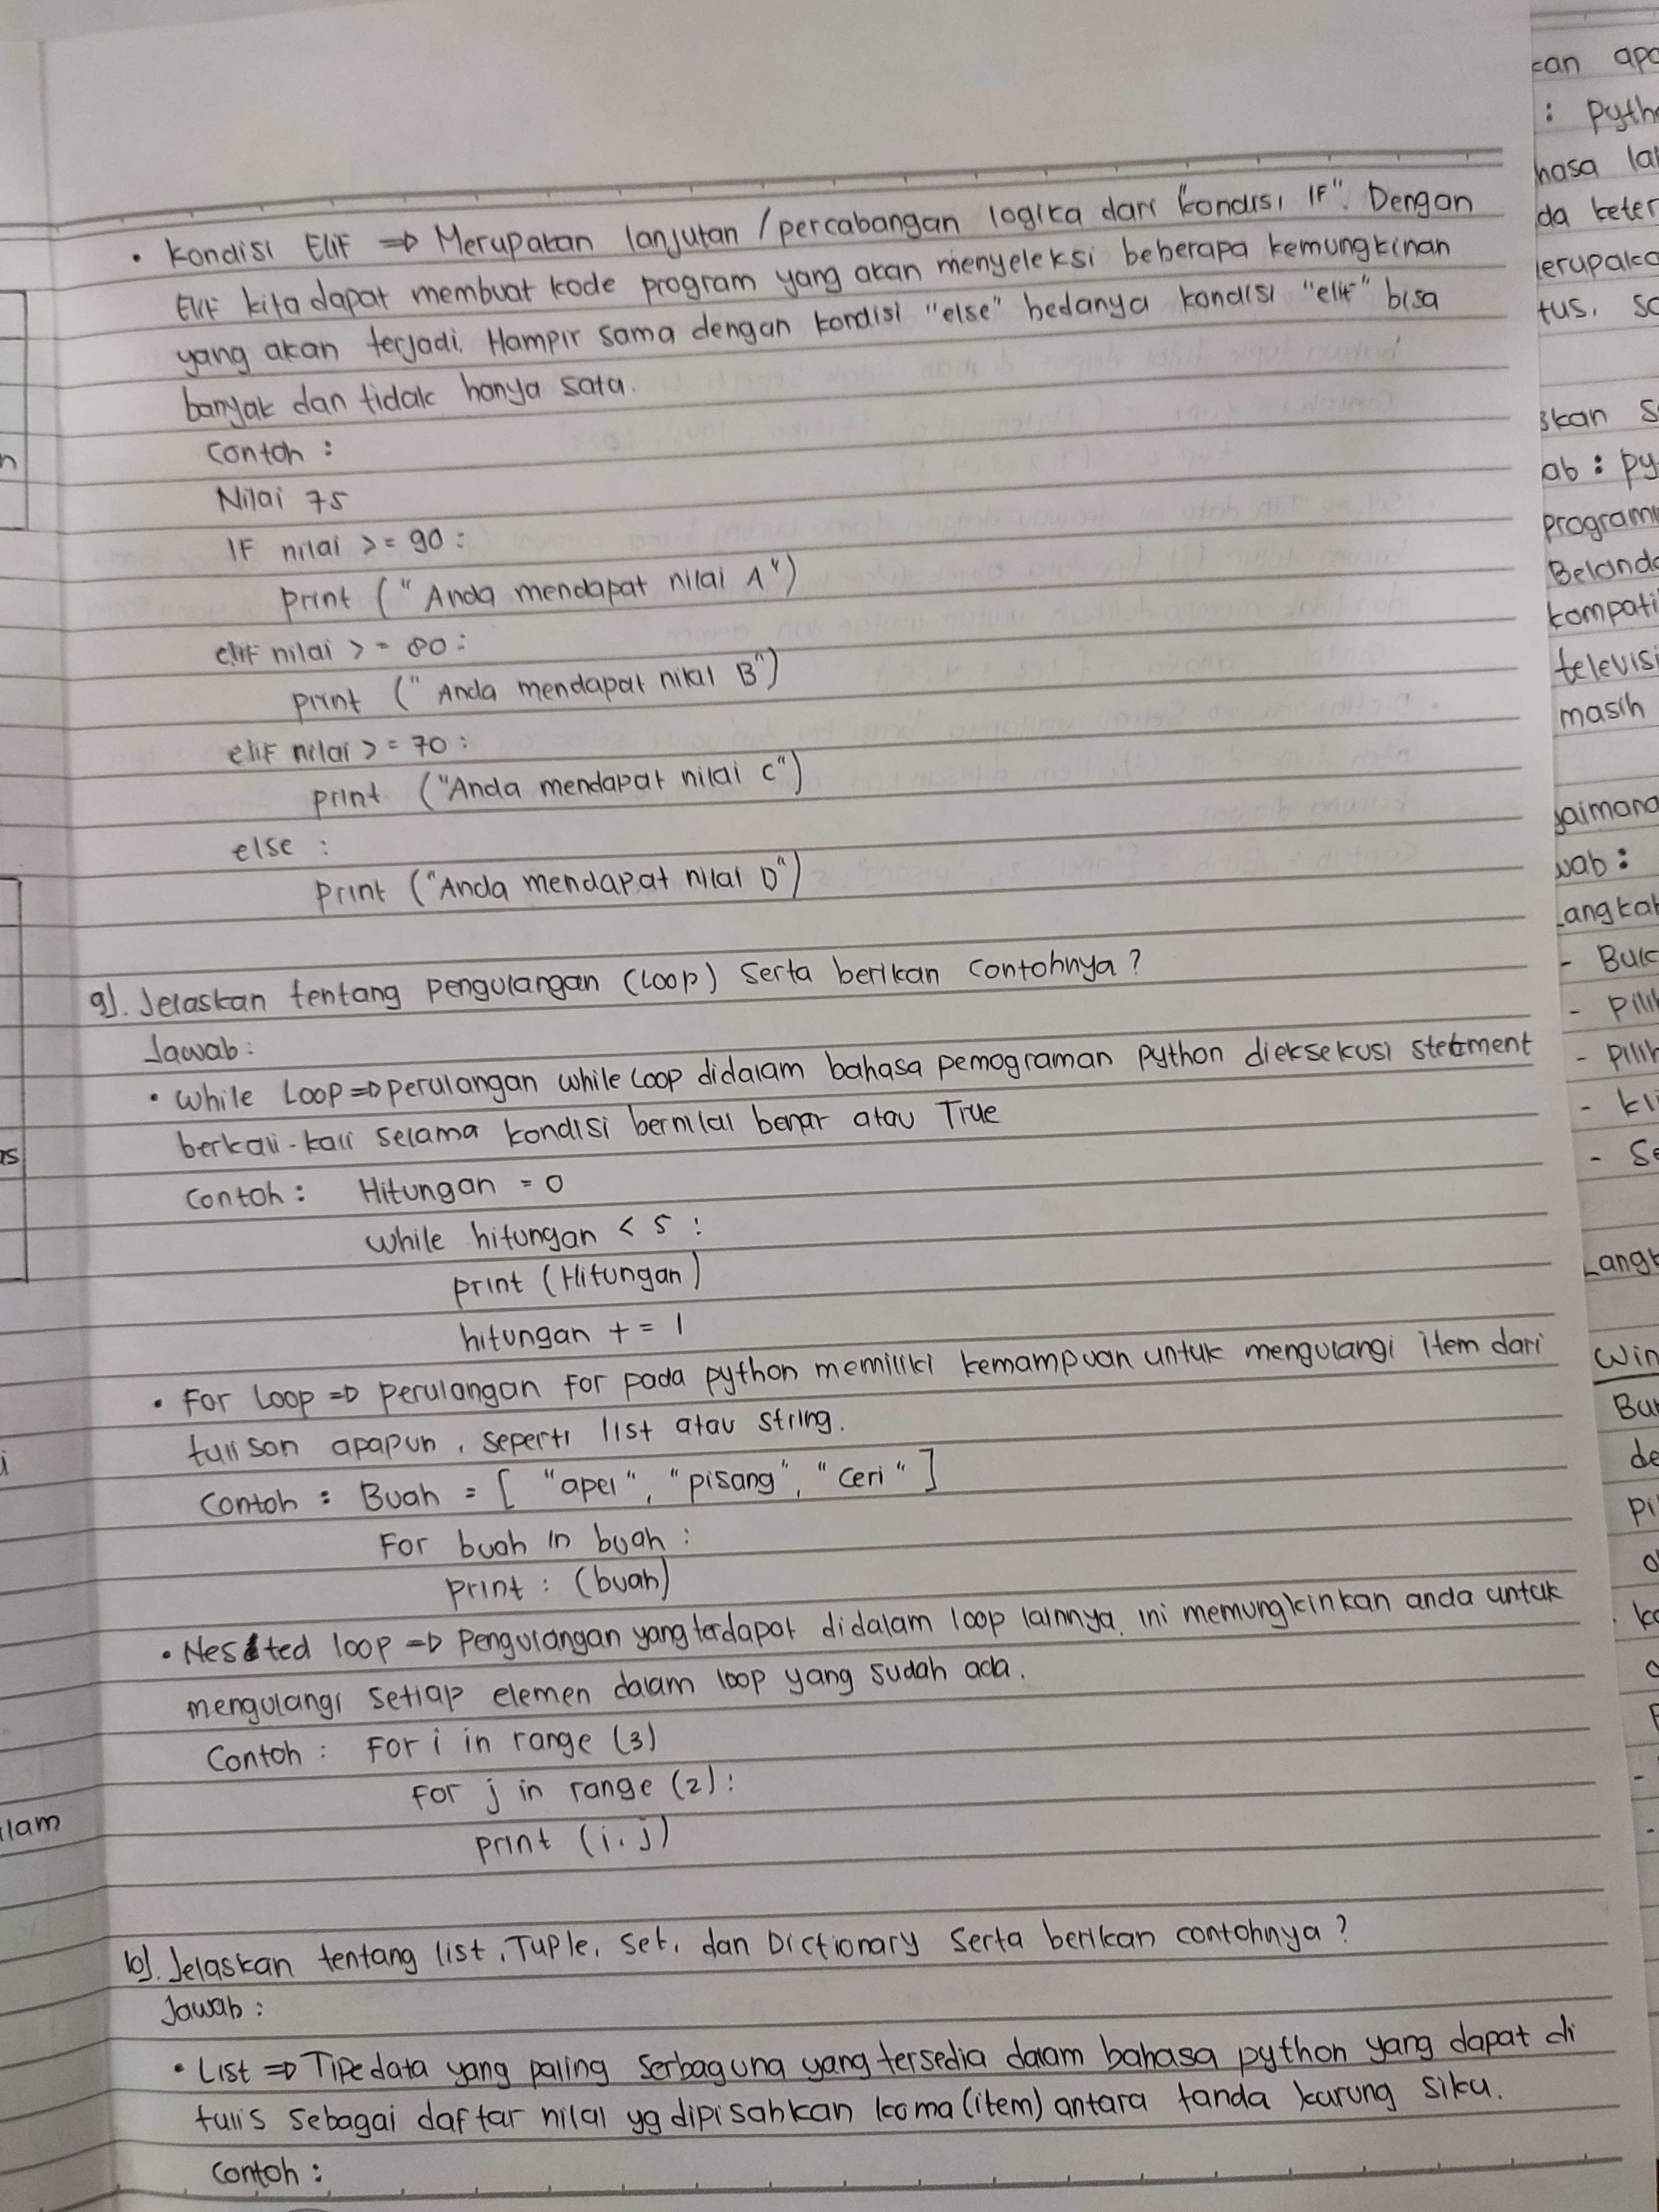 • Kondisi Elif => Merupakan lanjutan / percabangan logika dari "kondisi IF". Dengan
Elif kita dapat membuat kode program yang akan menyeleksi beberapa kemungkinan
yang akan terjadi. Hampir sama dengan kondisi "else" bedanya kondisi "elif" bisa
banyak dan tidak hanya satu.
Contoh :
Nilai 75
IF nilai >= 90 :
print ("Anda mendapat nilai A")
elif nilai >= 80 :
print ("Anda mendapat nilai B")
elif nilai >= 70 :
print ("Anda mendapat nilai C")
else :
print ("Anda mendapat nilai D")
9). Jelaskan tentang pengulangan (Loop) serta berikan contohnya ?
Jawab :
• While Loop => perulangan while loop didalam bahasa pemograman python dieksekusi stetment
berkali-kali selama kondisi bernilai benar atau True
Contoh : Hitungan = 0
while hitungan < 5 :
print (Hitungan)
hitungan += 1
• For Loop => perulangan for pada python memiliki kemampuan untuk mengulangi item dari
apapun, seperti list atau string.
Contoh : Buah = [ "apel", "pisang", "ceri" ]
For buah in buah :
print : (buah)
• Nested loop => Pengulangan yang terdapat didalam loop lainnya. ini memungkinkan anda untuk
mengulangi setiap elemen dalam loop yang sudah ada.
Contoh : For i in range (3)
For j in range (2) :
print (i, j)
10). Jelaskan tentang list, Tuple, Set, dan Dictionary serta berikan contohnya ?
Jawab :
• List => Tipe data yang paling serbaguna yang tersedia dalam bahasa python yang dapat di
tulis sebagai daftar nilai yg dipisahkan koma (item) antara tanda kurung siku.
Contoh :